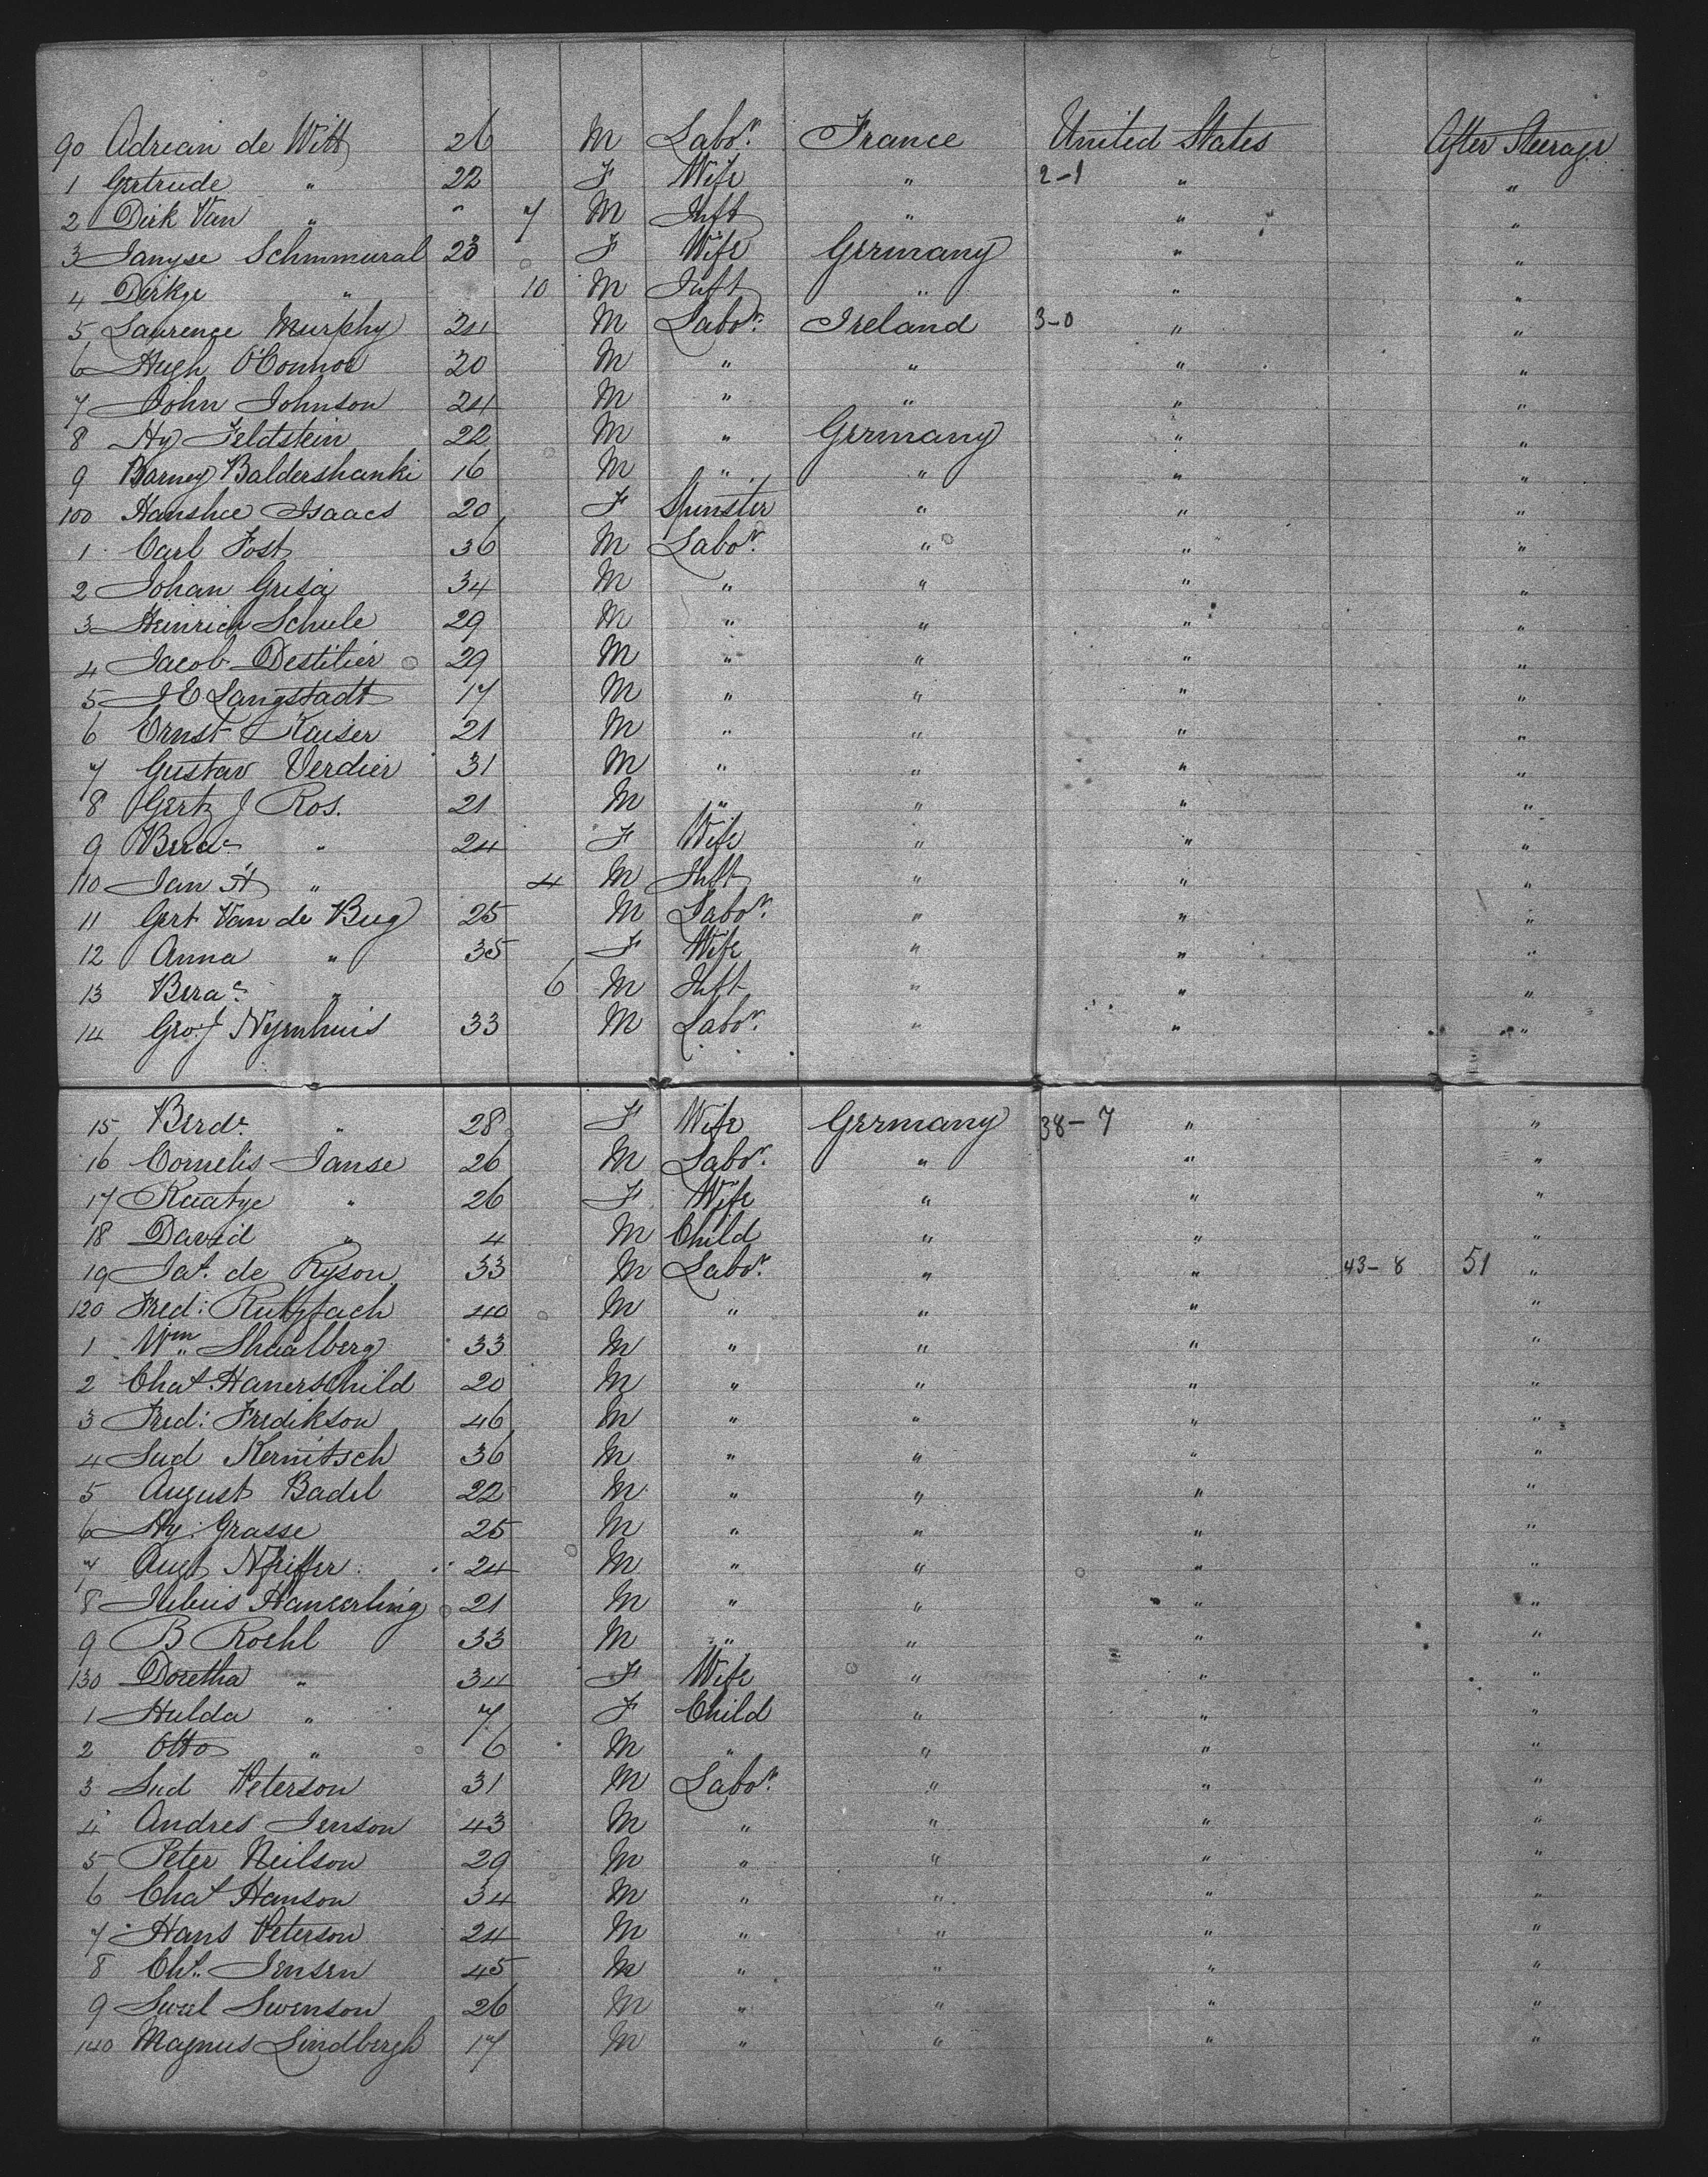 90 Adrian de Witt 26 M Labor. France United States After Steerage
1 Gertrude " 22 F Wife " 2-1 " "
2 Dirk Van " " 7 M Inft " " "
3 Janyse Schmmural 23 F Wife Germany " "
4 Dirkje " 10 M Inft " " "
5 Laurence Murphy 24 M Labor. Ireland 3-0 " "
6 Hugh O'Connor 20 M " " " "
7 John Johnson 24 M " " " "
8 Hy Feldstein 22 M " Germany " "
9 Barney Baldershanki 16 M " " " "
100 Isaacs 20 F Spinster " " "
1 Carl Fost 36 M Labor. " " "
2 Johan Grisa 34 M " " " "
3 Heinrich Schule 29 M " " " "
4 Jacob Destilier 29 M " " " "
5 J E Langstadt 17 M " " " "
6 Ernst Kaiser 21 M " " " "
7 Gustav Verdier 31 M " " " "
8 Gert J Ros. 21 M " " " "
9 " 24 F Wife " " "
110 Jan A " 4 M Inft " " "
11 Gert Van de Bug 25 M Labor. " " "
12 Anna " 35 F Wife " " "
13 " 6 M Inft " " "
14 Nyenhuis 33 M Labor. " " "
15 " 28 F Wife Germany 38-7 " "
16 Cornelis Janse 26 M Labor. " " "
17 Kaatye " 26 F Wife " " "
18 David " 4 M Child " " "
19 Jas. de Ryson 33 M Labor. " " 43-8 51 "
120 Fred: 40 M " " " "
1 Wm Shaalberg 33 M " " " "
2 Chas. Hanerschild 20 M " " " "
3 Fred: Fredikson 46 M " " " "
4 Lud Kernitsch 36 M " " " "
5 August Badel 22 M " " " "
6 Hy: Grasse 25 M " " " "
7 Augt 24 M " " " "
8 Julius Hancerling 21 M " " " "
9 B Roehl 33 M " " " "
130 Doretha " 34 F Wife " " "
1 Hulda " 7 F Child " " "
2 Otto " 6 M " " " "
3 Lud Peterson 31 M Labor. " " "
4 Andres Jenson 43 M " " " "
5 Peter Neilson 29 M " " " "
6 Chas Hanson 34 M " " " "
7 Hans Peterson 24 M " " " "
8 Chs. Jensen 45 M " " " "
9 Swenson 26 M " " " "
140 Magnus Lindbergh 17 M " " " "